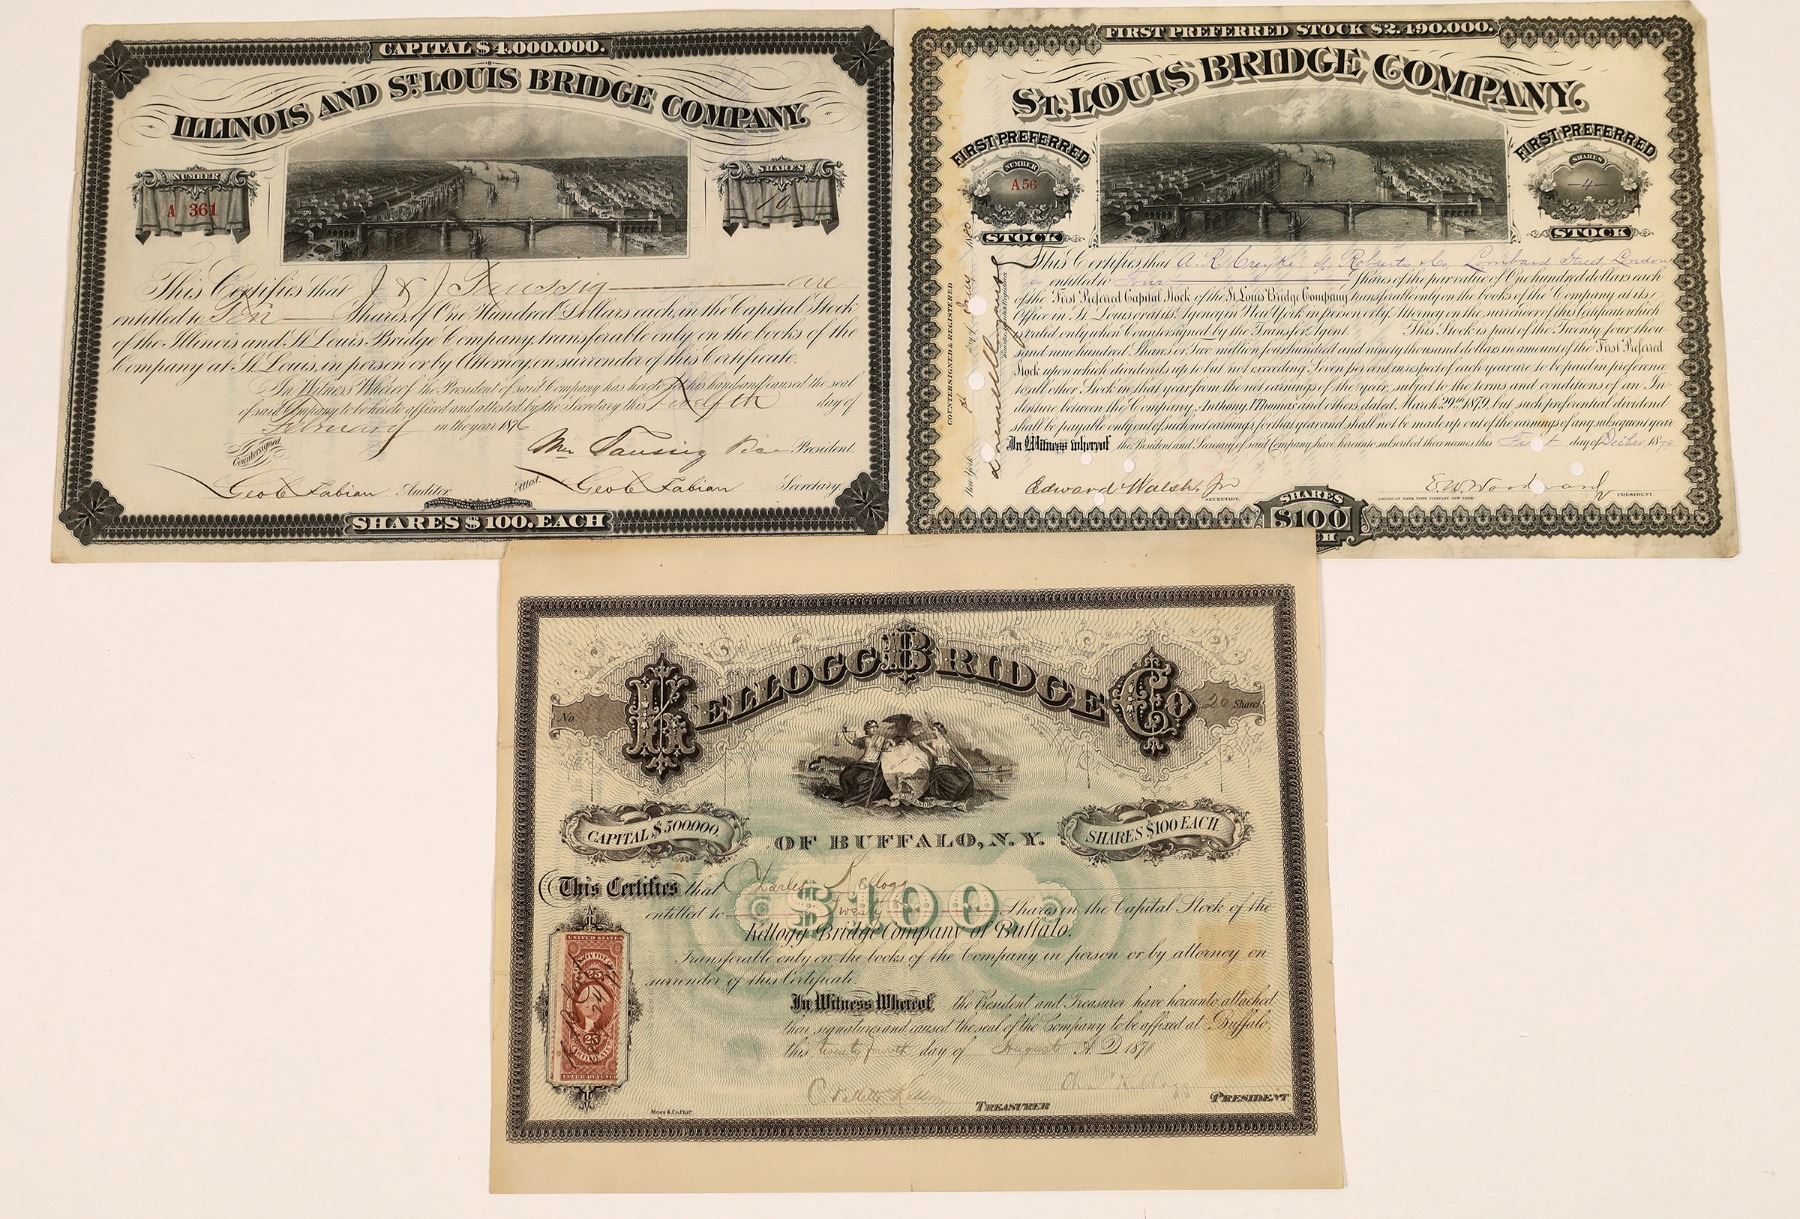 CAPITAL $4.000.000.
ILLINOIS AND ST. LOUIS BRIDGE COMPANY.
NUMBER
A 361
SHARES
10
This Certifies that J & J Taussig are
entitled to Ten Shares, of One Hundred Dollars each, in the Capital Stock
of the Illinois and St. Louis Bridge Company, transferable only on the books of the
Company at St. Louis, in person or by Attorney on surrender of this Certificate.
In Witness Whereof the President of said Company has hereto set his hand and caused the seal
of said Company to be hereto affixed and attested by the Secretary this Twelfth day of
February in the year 1876
Countersigned
Wm Taussig President.
Geo C Fabian Auditor Attest. Geo C Fabian Secretary
SHARES $100. EACH
FIRST PREFERRED STOCK $2.490.000.
ST. LOUIS BRIDGE COMPANY.
FIRST PREFERRED
NUMBER
A56
STOCK
FIRST PREFERRED
SHARES
4
STOCK
COUNTERSIGNED & REGISTERED
New York
This Certifies that A. R. Creyke of Roberts & Co Lombard Street London
is entitled to Four Shares of the par value of One hundred dollars each
of the First Preferred Capital Stock of the St. Louis Bridge Company transferable only on the books of the Company at its
Office in St. Louis or at its Agency in New York in person or by Attorney on the surrender of this Certificate which
is valid only when Countersigned by the Transfer Agent. This Stock is part of the Twenty four thou
sand nine hundred Shares or Two million four hundred and ninety thousand dollars in amount of the First Preferred
Stock upon which dividends up to but not exceeding Five per cent in respect of each year are to be paid in preference
to all other Stock in that year from the net earnings of the year, subject to the terms and conditions of an In-
denture between the Company, Anthony J. Thomas and others dated, March 29th 1879, but such preferential dividend
shall be payable only out of such net earnings for that year and shall not be made up out of the earnings of any subsequent year.
In Witness whereof the President and Secretary of said Company have hereunto subscribed their names this First day of December 1879
Edward Walsh, Jr SECRETARY.
AMERICAN BANK NOTE COMPANY NEW YORK
E. W. Woodward PRESIDENT
SHARES
$100
EACH
KELLOGG BRIDGE CO
No.
20 Shares
CAPITAL $500000.
OF BUFFALO, N. Y.
SHARES $100 EACH.
$100
This Certifies that Charles Kellogg
entitled to Twenty Shares in the Capital Stock of the
Kellogg Bridge Company of Buffalo.
Transferable only on the books of the Company in person or by attorney on
surrender of this Certificate
In Witness Whereof the President and Treasurer have hereunto attached
their signatures and caused the seal of the Company to be affixed at Buffalo,
this twenty fourth day of August A.D. 1870
UNITED STATES
25
25
INTER. REVENUE
Chas Kellogg
TREASURER
PRESIDENT